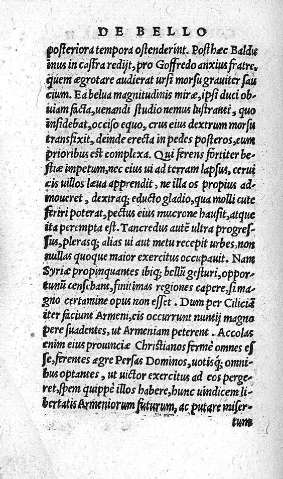 DE BELLO
posteriora tempora ostenderint. Posthæc Baldu
inus in castra redijt, pro Goffredo anxius fratre,
quem ægrotare audierat ursi morsu grauiter sau
cium. Ea belua magnitudinis miræ, ipsi duci ob-
uiam facta, uenandi studio nemus lustranti, quo
insidebat, occiso equo, crus eius dextrum morsu
transfixit, deinde erecta in pedes posteros, eum
prioribus est complexa. Qui ferens fortiter be-
stiæ impetum, nec eius ui ad terram lapsus, cerui
cis uillos læua apprendit, ne illa os propius ad-
moueret, dextraq; educto gladio, qua molli cute
feriri poterat, pectus eius mucrone hausit, atque
ita perempta est. Tancredus autē ultra progres-
sus, plerasq; alias ui aut metu recepit urbes, non
nullas quoque maior exercitus occupauit. Nam
Syriæ propinquantes ibiq; bellū gesturi, oppor-
tunū censebant, finitimas regiones capere, si ma
gno certamine opus non esset. Dum per Ciliciā
iter faciunt Armeni, cis occurrunt nuntij magno
pere suadentes, ut Armeniam peterent. Accolas
enim eius prouinciæ Christianos fermè omnes es
se, ferentes ægre Persas Dominos, uotisq; omni
bus optantes, ut uictor exercitus ad eos perge-
ret, spem quippe illos habere, hunc uindicem li-
bertatis Armeniorum futurum, ac putare miser-
tum